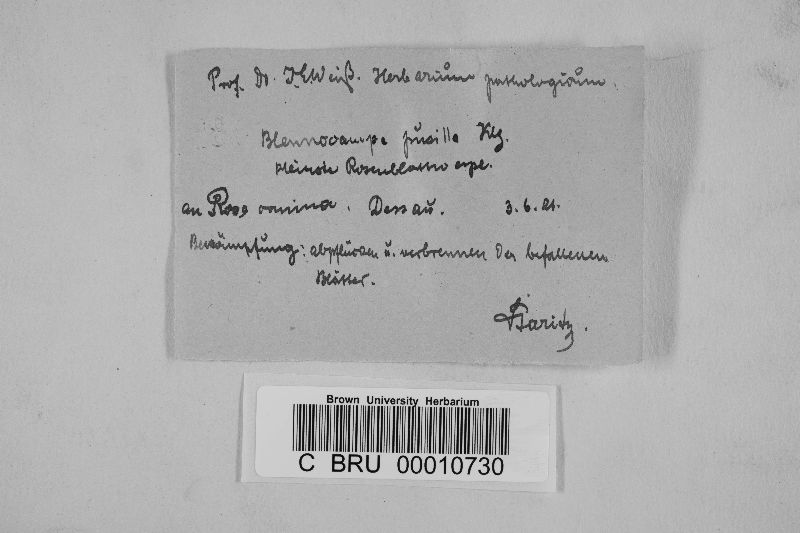 Prof. Dr. J. E. Weiß. Herbarium pathologicum.
Blennocampa pusilla Klg.
kleinste Rosenblattwespe.
an Rosa canina. Dessau. 3. 6. 21.
Bekämpfung: abpflücken u. verbrennen der befallenen
Blätter.
Staritz.
Brown University Herbarium
C BRU 00010730